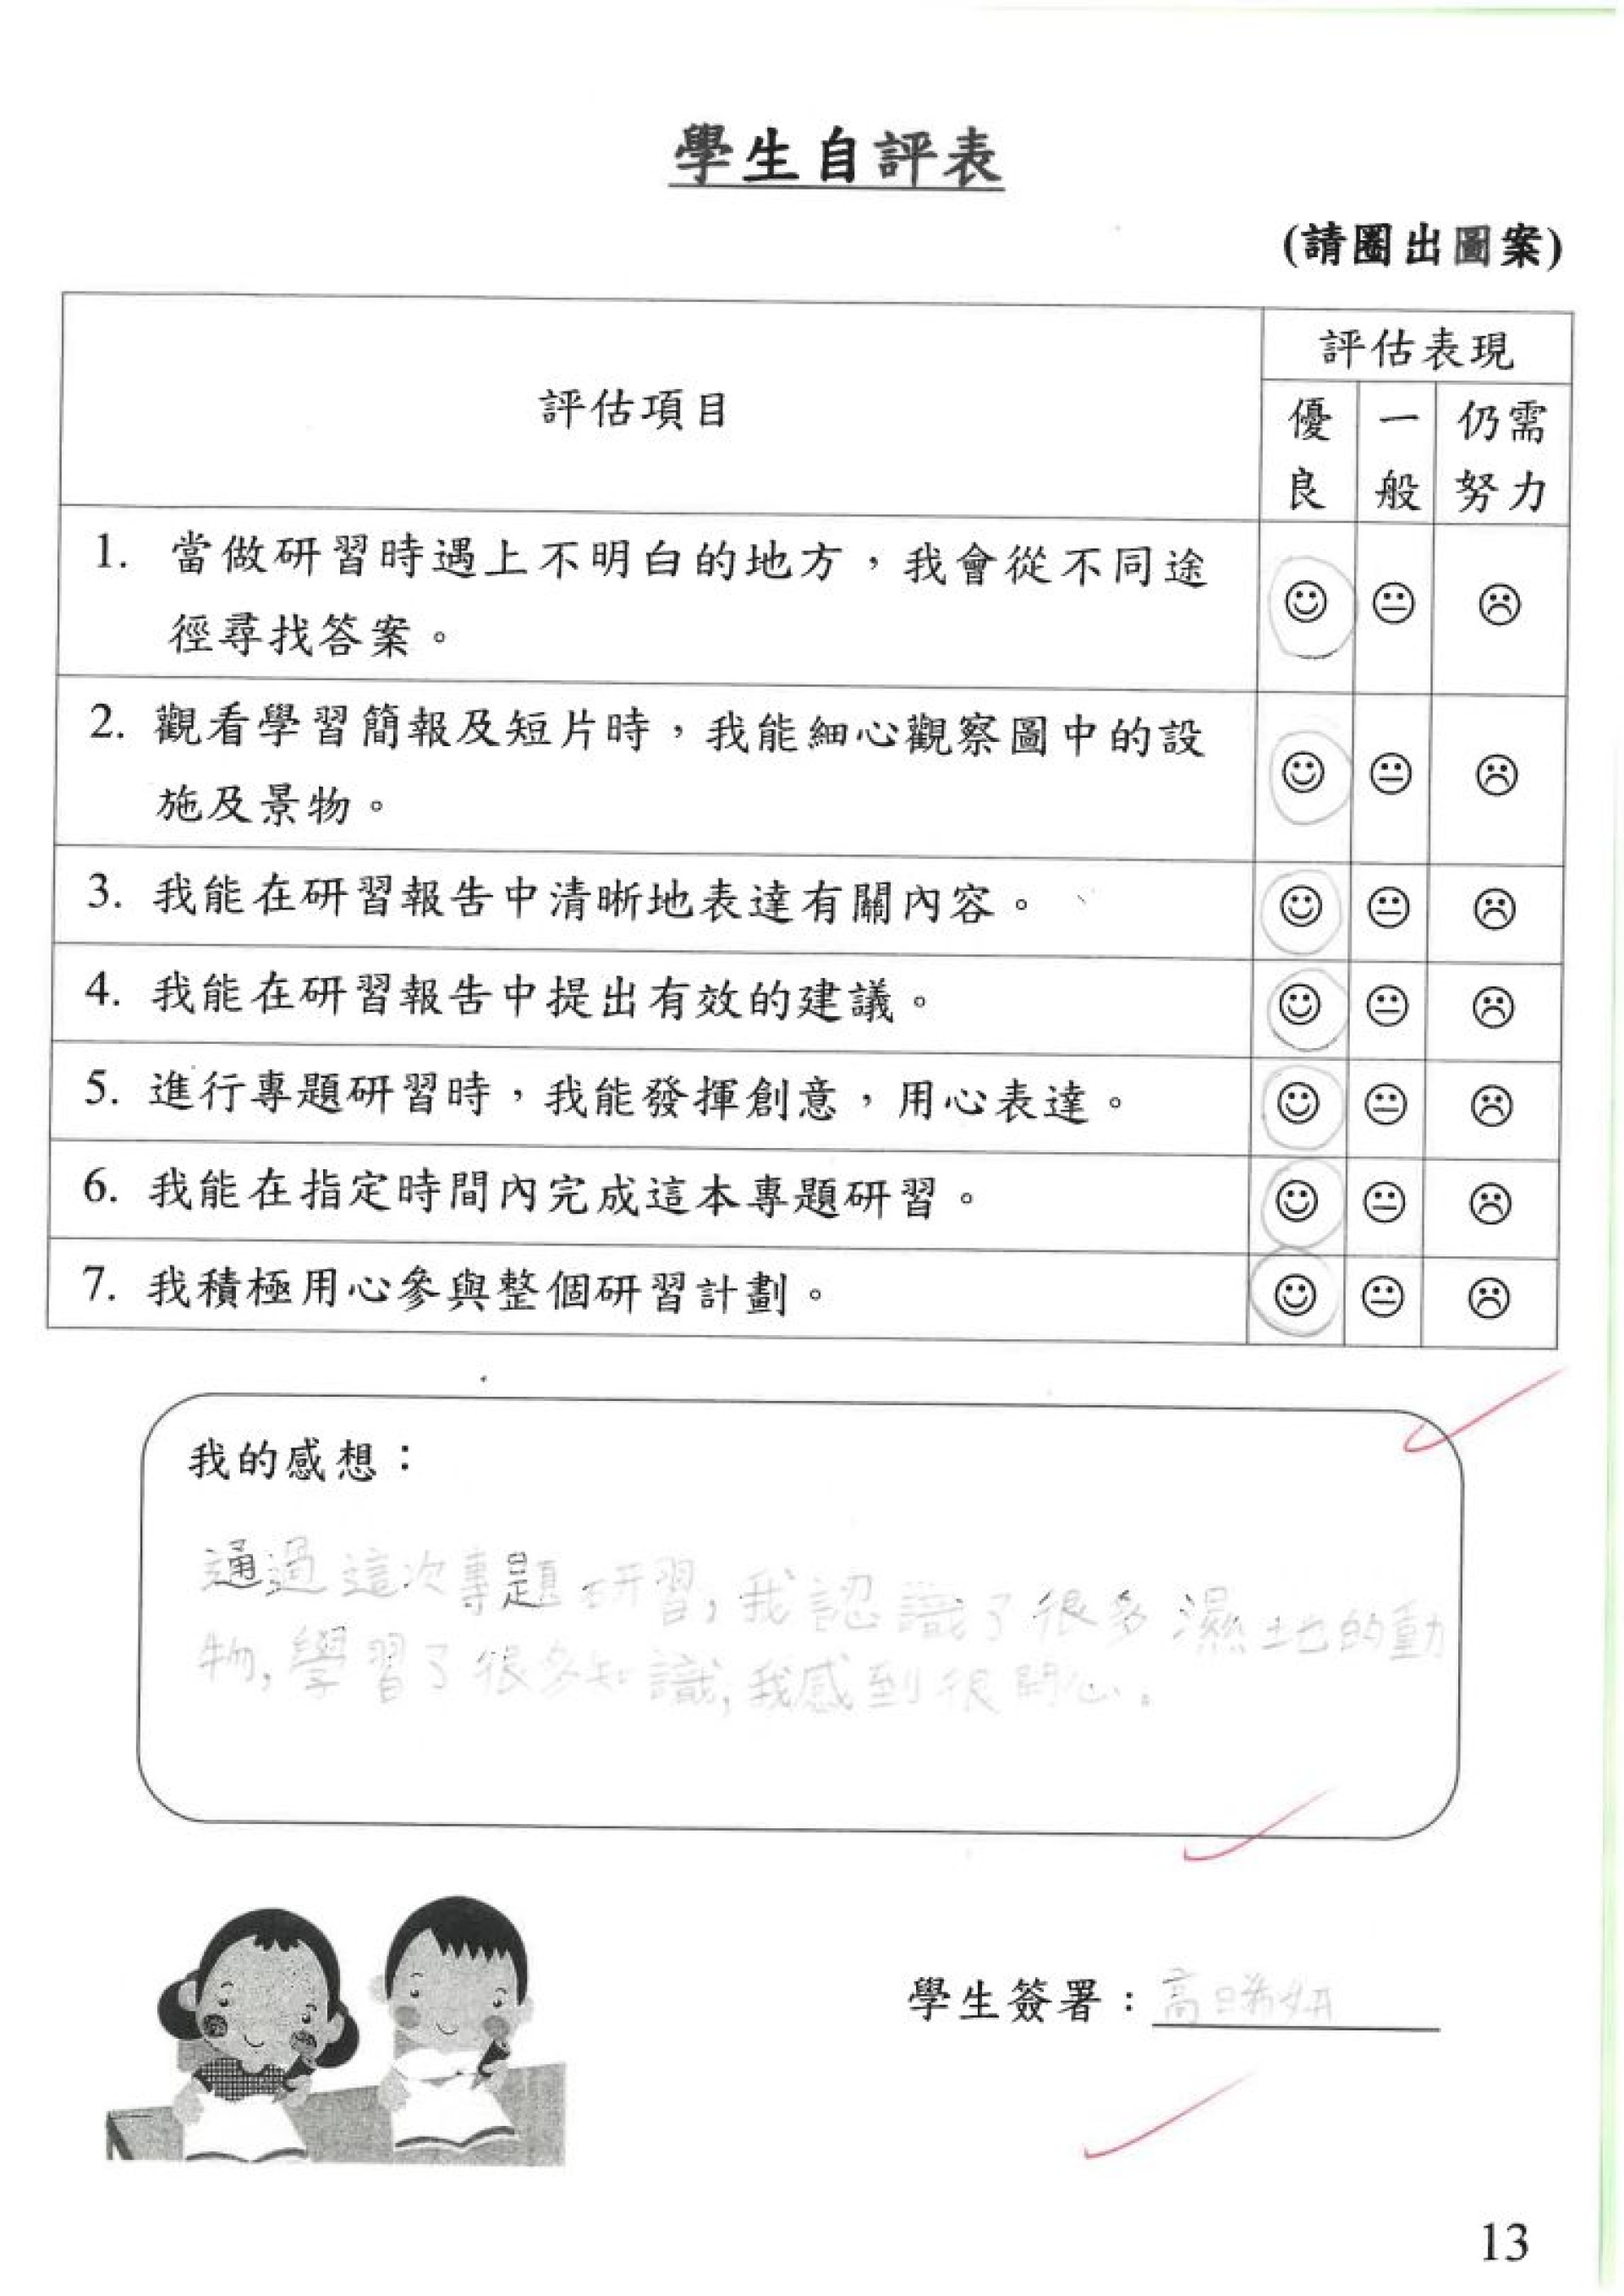 學生自評表
(請圈出圖案)
評估項目
評估表現
優良
一般
仍需努力
1. 當做研習時遇上不明白的地方，我會從不同途
徑尋找答案。
2. 觀看學習簡報及短片時，我能細心觀察圖中的設
施及景物。
3. 我能在研習報告中清晰地表達有關內容。
4. 我能在研習報告中提出有效的建議。
5. 進行專題研習時，我能發揮創意，用心表達。
6. 我能在指定時間內完成這本專題研習。
7. 我積極用心參與整個研習計劃。
我的感想：
通過這次專題研習,我認識了很多濕地的動
物,學習了很多知識,我感到很開心。
學生簽署：高晞妍
13